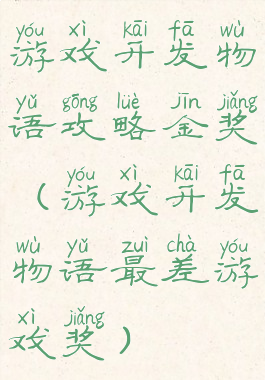 yóu xì kāi fā wù
游戏开发物
yǔ gōng lüè jīn jiǎng
语攻略金奖
yóu xì kāi fā
（游戏开发
wù yǔ zuì chà yóu
物语最差游
xì jiǎng
戏奖）